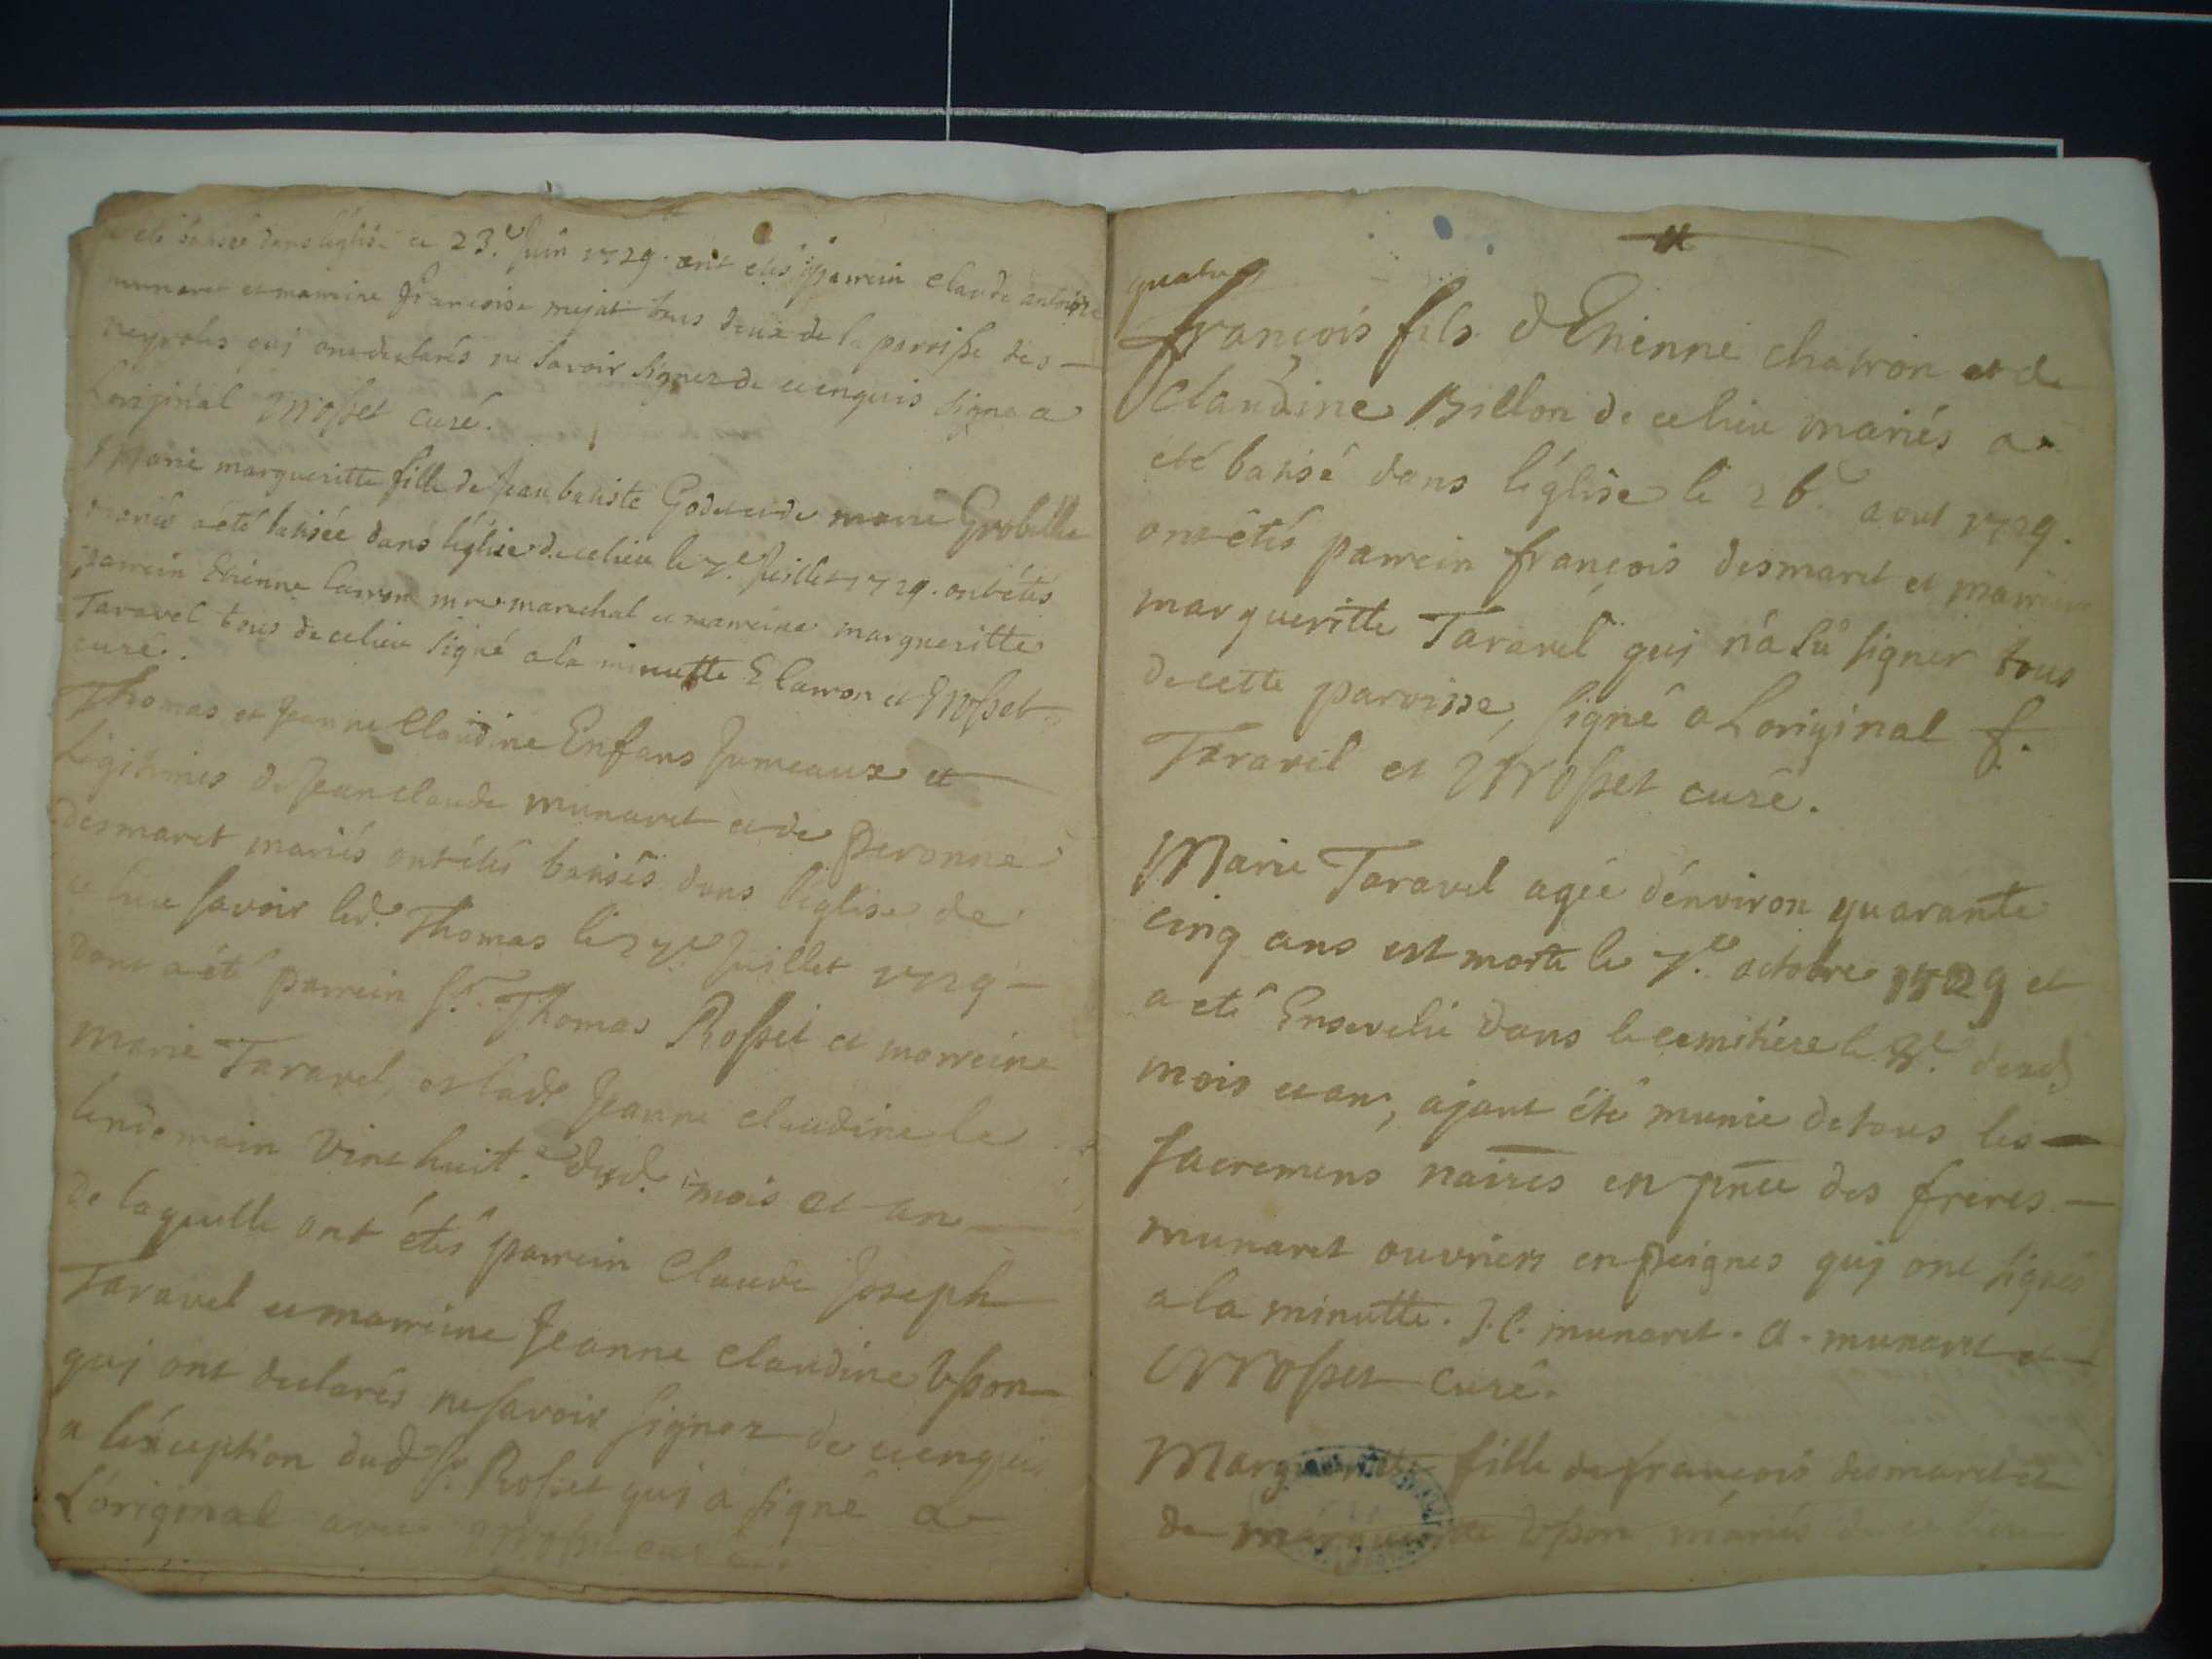 a été batisée dans l'église ce 23.e Juin 1729. ont etés parrein Claude antoine
munaret et marreine francoise mujat tous deux de la parroisse des —
neyroles qui ont declarés ne savoir signer de ce enquis signé a
Loriginal Mrosset curé.
Marie margueritte fille de Jean batiste Godet et de marie Grobellie
mariés a été batisée dans l'église de ce lieu le 7.e Juillet 1729. ont étés
parrein Etienne Carron mre marechal et marreine margueritte
Taravel tous de ce lieu signé a la minutte E Carron et Mrosset
curé.
Thomas et Jeanne Claudine Enfans Jumeaux et
Légitimes de Jean claude munaret et de peronne
desmaret mariés ont étés batisés dans l'église de
ce lieu savoir led.t Thomas le 27e Juillet 1729 —
dont a été parrein Sr. Thomas Rosset et marreine
marie Taravel, et lad.e Jeanne claudine le
lendemain vint huit.e dud. mois et an —
de laquelle ont étés parrein Claude Joseph
Taravel et marreine Jeanne claudine
qui ont declarés ne savoir signer de ce enquis
a léxception dud. Sr. Rosset qui a signé a
Loriginal avec Mrosset curé.
quatre
françois fils d Etienne chatron et de
Claudine Billon de ce lieu mariés a
été batisé dans l'église le 26.e aout 1729.
ont étés parrein françois desmaret et marreine
margueritte Taravel qui n'a sû signer tous
de cette paroisse, signé a Loriginal f.
Taravel et Mrosset curé.
Marie Taravel agée d'énviron quarante
cinq ans est morte le 7.e octobre 1729 et
a eté Ensevelie dans le cemitiére le 8.e dud.
mois et an, ajant été munie de tous les —
sacremens naires en pñce des freres —
munaret ouvriers en peignes qui ont signés
a la minutte. J. C. munaret. a. munaret et
Mrosset curé.
Margueritte fille de françois desmaret et
de margueritte mariés de ce lieu